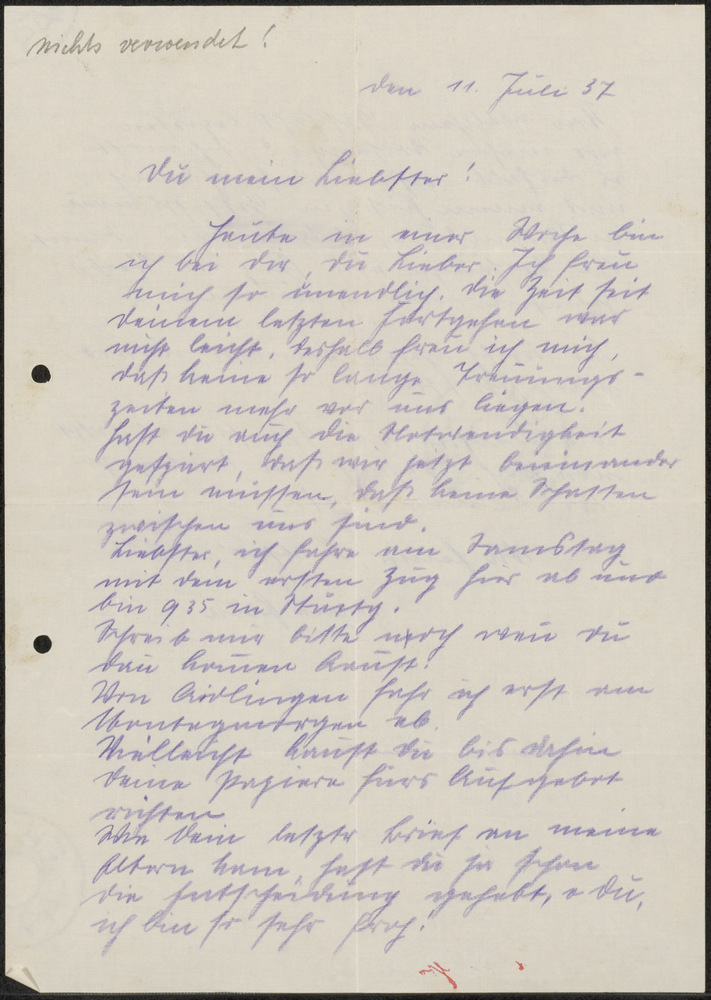 nichts verwendet!
den 11. Juli 37
Du mein Liebster!
Heute in einer Woche bin
ich bei Dir, Du Lieber. Ich freu
mich so unendlich. Die Zeit seit
Deinem letzten Fortgehen war
nicht leicht, deshalb freu ich mich,
daß keine so lange Trennungs-
zeiten mehr vor uns liegen.
Hast Du auch die Notwendigkeit
gespürt, daß wir jetzt beieinander
sein müssen, daß keine Schatten
zwischen uns sind.
Liebster, ich fahre am Samstag
mit dem ersten Zug hier ab und
bin 9 35 in Stuttg.
Schreib mir bitte noch wen Du
dan komen kanst!
Von Aidlingen fahr ich erst am
Montagmorgen ab.
Vielleicht kanst Du bis dahin
Deine Papiere fürs Aufgebot
richten.
Wie Dein letzter Brief an meine
Eltern kam, hast Du ja schon
die Entscheidung gehabt, o Du,
ich bin so sehr froh!